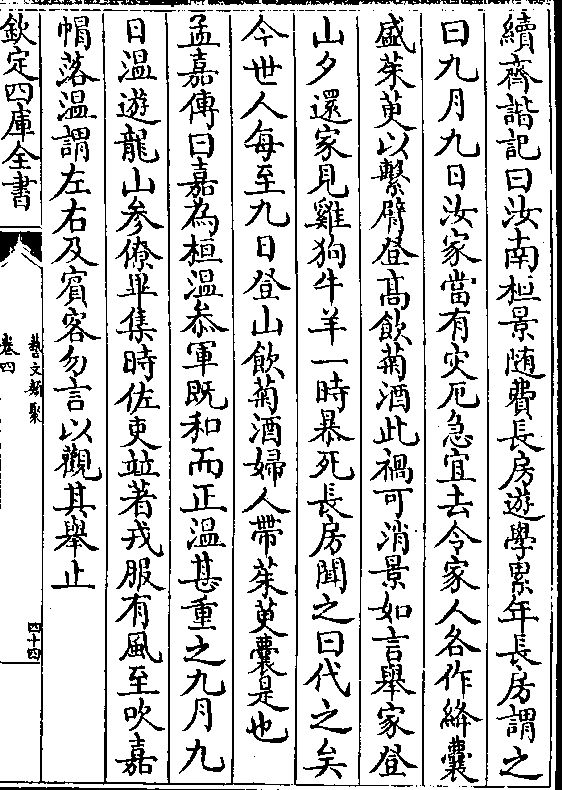 續齊諧記曰汝南桓景随費長房遊學累年長房謂之
曰九月九日汝家當有灾厄急宜去令家人各作絳囊
盛茱萸以繫臂登高飲菊酒此禍可消景如言舉家登
山夕還家見雞狗牛羊一時暴死長房聞之曰代之矣
今世人每至九日登山飲菊酒婦人帶茱萸囊是也
孟嘉傳曰嘉為桓温叅軍既和而正温甚重之九月九
日温遊龍山參僚畢集時佐吏竝著戎服有風至吹嘉
帽落温謂左右及賓客勿言以觀其舉止
欽定四庫全書
藝文類聚
卷四
四十四